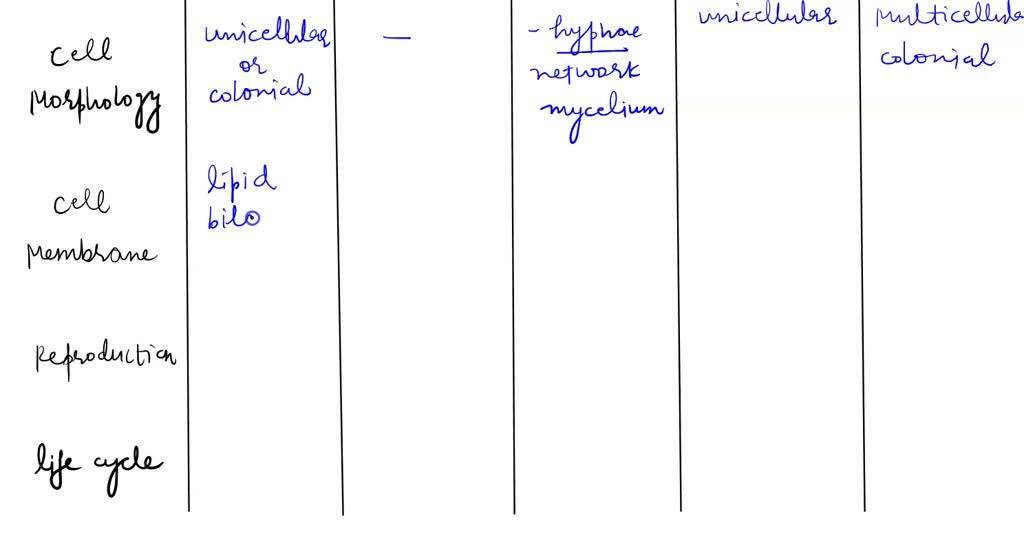 Cell
Morphology
unicellular
or
colonial
—
- hyphae
network
mycelium
unicellular
Multicellula
colonial
Cell
Membrane
lipid
bilo
Reproduction
life cycle